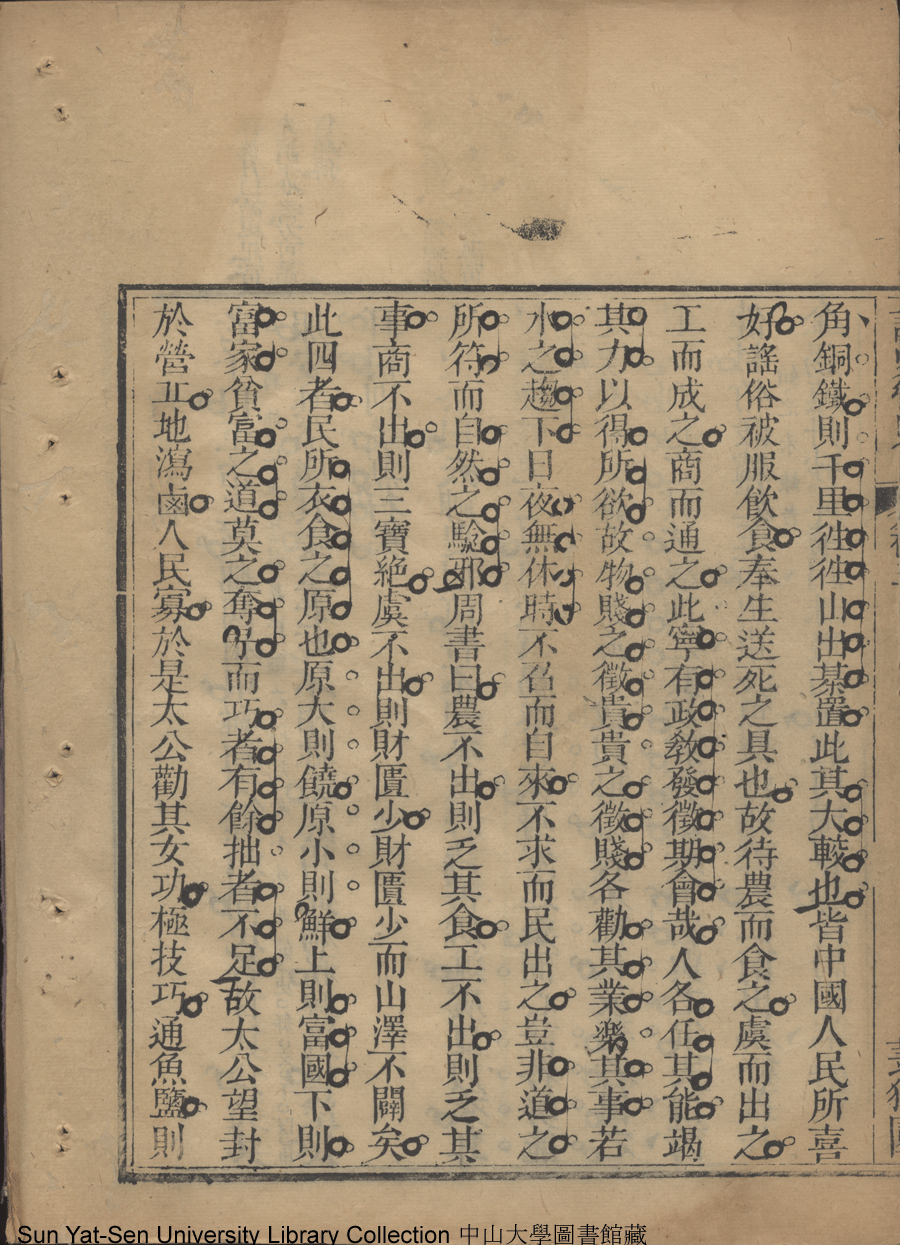 角銅鐵則千里徃徃山出棊置此其大較也皆中國人民所喜
好謠俗被服飲食奉生送死之具也故待農而食之虞而出之
工而成之商而通之此寧有政敎發徵期會哉人各任其能竭
其力以得所欲故物賤之徵貴貴之徵賤各勸其業樂其事若
水之趨下日夜無休時不召而自來不求而民出之豈非道之
所符而自然之驗邪周書曰農不出則乏其食工不出則乏其
事商不出則三寶絶虞不出則財匱少財匱少而山澤不闢矣
此四者民所衣食之原也原大則饒原小則鮮上則富國下則
富家貧富之道莫之奪予而巧者有餘拙者不足故太公望封
於營丘地瀉鹵人民寡於是太公勸其女功極技巧通魚鹽則
Sun Yat-Sen University Library Collection 中山大學圖書館藏